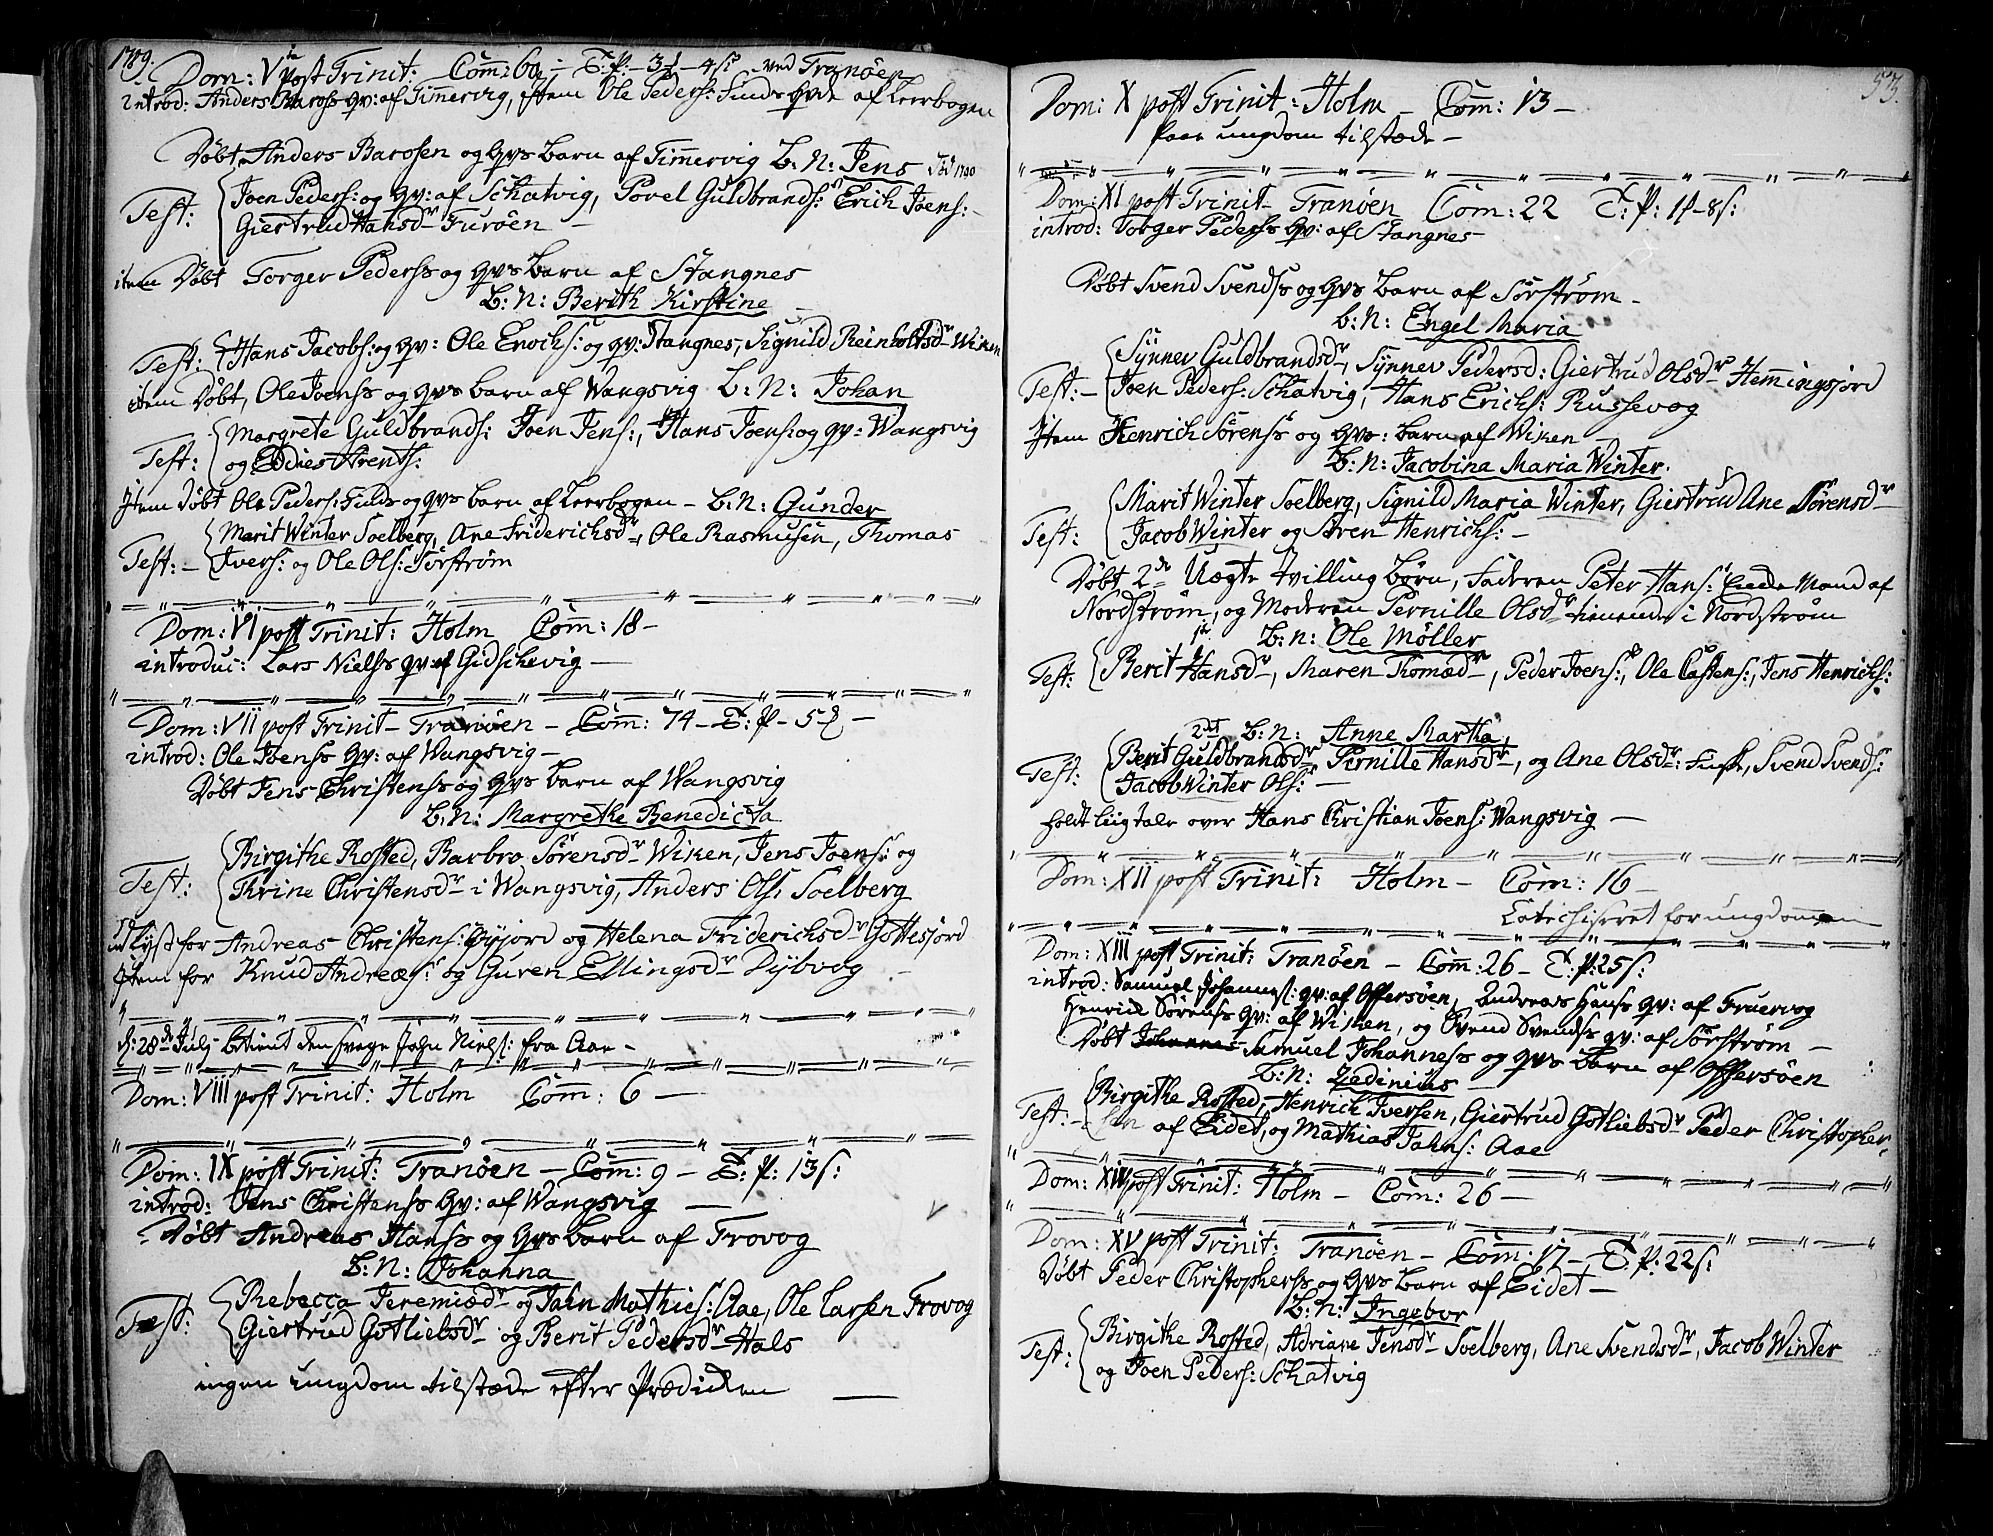 1789.
Dom: V post Trinit: Com̄: 60 – T: P: 3 – 4 ved Tranöen
introd: Anders Baross qv: af Timmervig, item Ole Peders: Funds qvde af Leerbogen
Döbt Anders Barosen og qvs barn af Timmervig B: N: Jens
Joen Peders: og qv: af Schatvig, Povel Guldbrands: Erich Joens:
Test: Giertrud Hansdr Furöen –
item Döbt Torger Pederss og qvs barn af Stangnes
B: N: Berith Kirstine
Test: Hans Jacobs: og qv: Ole Enochs: og qv: Stangnes, Signild Reinholtsdr Wiken
item Döbt, Ole Joenss og qvs barn af Wangsvig B: N: Johan
Margrete Guldbrands: Joen Jens:, Hans Joens: og qv: Wangsvig
Test: og Arents:
Item Döbt Ole Peders: Funds og qvs barn af Leerbogen – B: N: Gunder
Marit Winter Soelberg, Ane Friderichsdr, Ole Rasmusen, Thomas
Test: – Ivers: og Ole Ols: Sörström
Dom: VI post Trinit: Holm Com̄: 18 –
introduc: Lars Nielss qv: af Gidschevig –
Dom: VII post Trinit – Tranöen – Com̄: 74 – T: P – 5
introd: Ole Joenss qv: af Wangsvig –
Döbt Jens Christenss og qvs barn af Wangsvig
B: N: Margrethe Benedicta
Birgithe Rosted, Barbro Sörensdr Wiken, Jens Joens: og
Test: Thrine Christensdr i Wangsvig, Anders Ols: Soelberg
udlyst for Andreas Christens: Öyjord og Helena Friderichsdr Gottesjord
Item for Knud Andreæs: og Guren Ellingsdr Dybvog –
d: 28de Julj betient den svage John Niels: fra Aae –
Dom: VIII post Trinit: Holm Com̄: 6 –
Dom: IX post Trinit: Tranöen – Com̄: 9 – T: P: 13 s:
introd: Jens Christenss qv: af Wangsvig –
Döbt Andreas Hanss og qvs barn af Frovog
B: N: Johanna
Rebecca Jeremiædr og John Mathies: Aae, Ole Larsen Frovog
Test: Giertrud Gotliebsdr og Berit Pedersdr Hals
ingen ungdom tilstæde efter Prædiken –
53.
Dom: X post Trinit: Holm – Com̄: 13 –
faae ungdom tilstæde –
Dom: XI post Trinit – Tranöen Com: 22 T: P: 1 – 8 s:
introd: Torger Pederss qv: af Stangnes
Döbt Svend Svendss og qvs barn af Sörström –
B: N: Engel Maria
Synnev Guldbrandsdr, Synnev Pedersd: Giertrud Olsdr Hemmingsjord
Test: – Joen Peders: Schatvig, Hans Erichs: Russevog
Item Henrich Sörenss og qvs: barn af Wiken –
B: N: Jacobina Maria Winter.
Marit Winter Soelberg, Signild Maria Winter, Giertrud Ane Sörensdr
Test: Jacob Winter og Sören Henrichs: –
Döbt 2de Uægte tvilling börn, faderen Peter Hans: Mand af
Nordström, og Moderen Pernille Olsdr tienende i Nordström
1st B: N: Ole Möller
Test: Berit Hansdr, Maren Thomædr, Peder Joens:, Ole Castens:, Jens Henrichs:
2det B: N: Anne Martha,
Berit Guldbrandsdr, Pernille Hansdr, og Ane Olsdr: , Svend Svends:
Test: Jacob Winter Ols: –
holdt liigtale over Hans Christian Joens: Wangsvig –
Dom: XII post Trinit: Holm – Com: 16 –
Catechiseret for ungdommen
Dom: XIII post Trinit: Tranöen – Com̄: 26 – T: P: 25 s:
introd: Samuel Johanness: qv: af Offersöen, Andreas Hanss qv: af Fruervog
Henrich Sörenss qv: af Wiken, og Svend Svendss qv: af Sörström –
Döbt Johannes Samuel Johanness og qvs barn af Offersöen
B: N: Zedinius
Birgithe Rosted, Henrich Iversen, Giertrud Gotliebsdr Peder Christopher
Test: – sen af Eidet, og Mathias Johns: Aae
Dom: XIV post Trinit: Holm – Com: 26 –
Dom: XV post Trinit: Tranöen – Com̄: 17 – T: P: 22 s:
Döbt Peder Christopherss og qvs barn af Eidet –
B: N: Ingebor
Birgithe Rosted, Adriane Jensdr Soelberg, Ane Svendsdr, Jacob Winter
Test: og Joen Peders: Schatvig